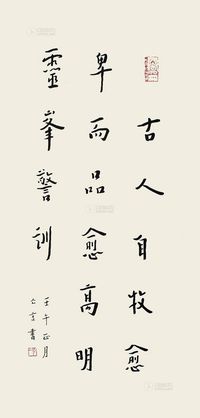 古人自牧愈
卑而品愈高明
靈峯警訓
壬午正月